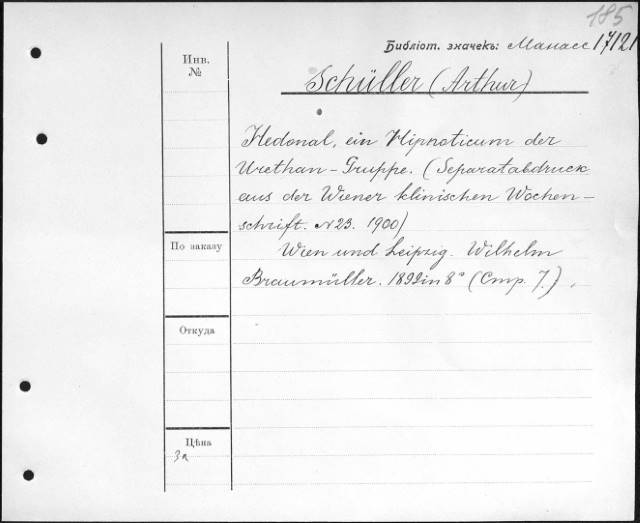 185
Библіот. значекъ: Манасс 17121
Инв.
№
Schüller (Arthur)
Hedonal, ein Hipnoticum der
Urethan-Gruppe. (Separatabdruck
aus der Wiener klinischen Wochen-
schrift. N 23. 1900)
По заказу
Wien und Leipzig. Wilhelm
Braumüller. 1892 in 8° (Стр. 7.)
Откуда
Цѣна